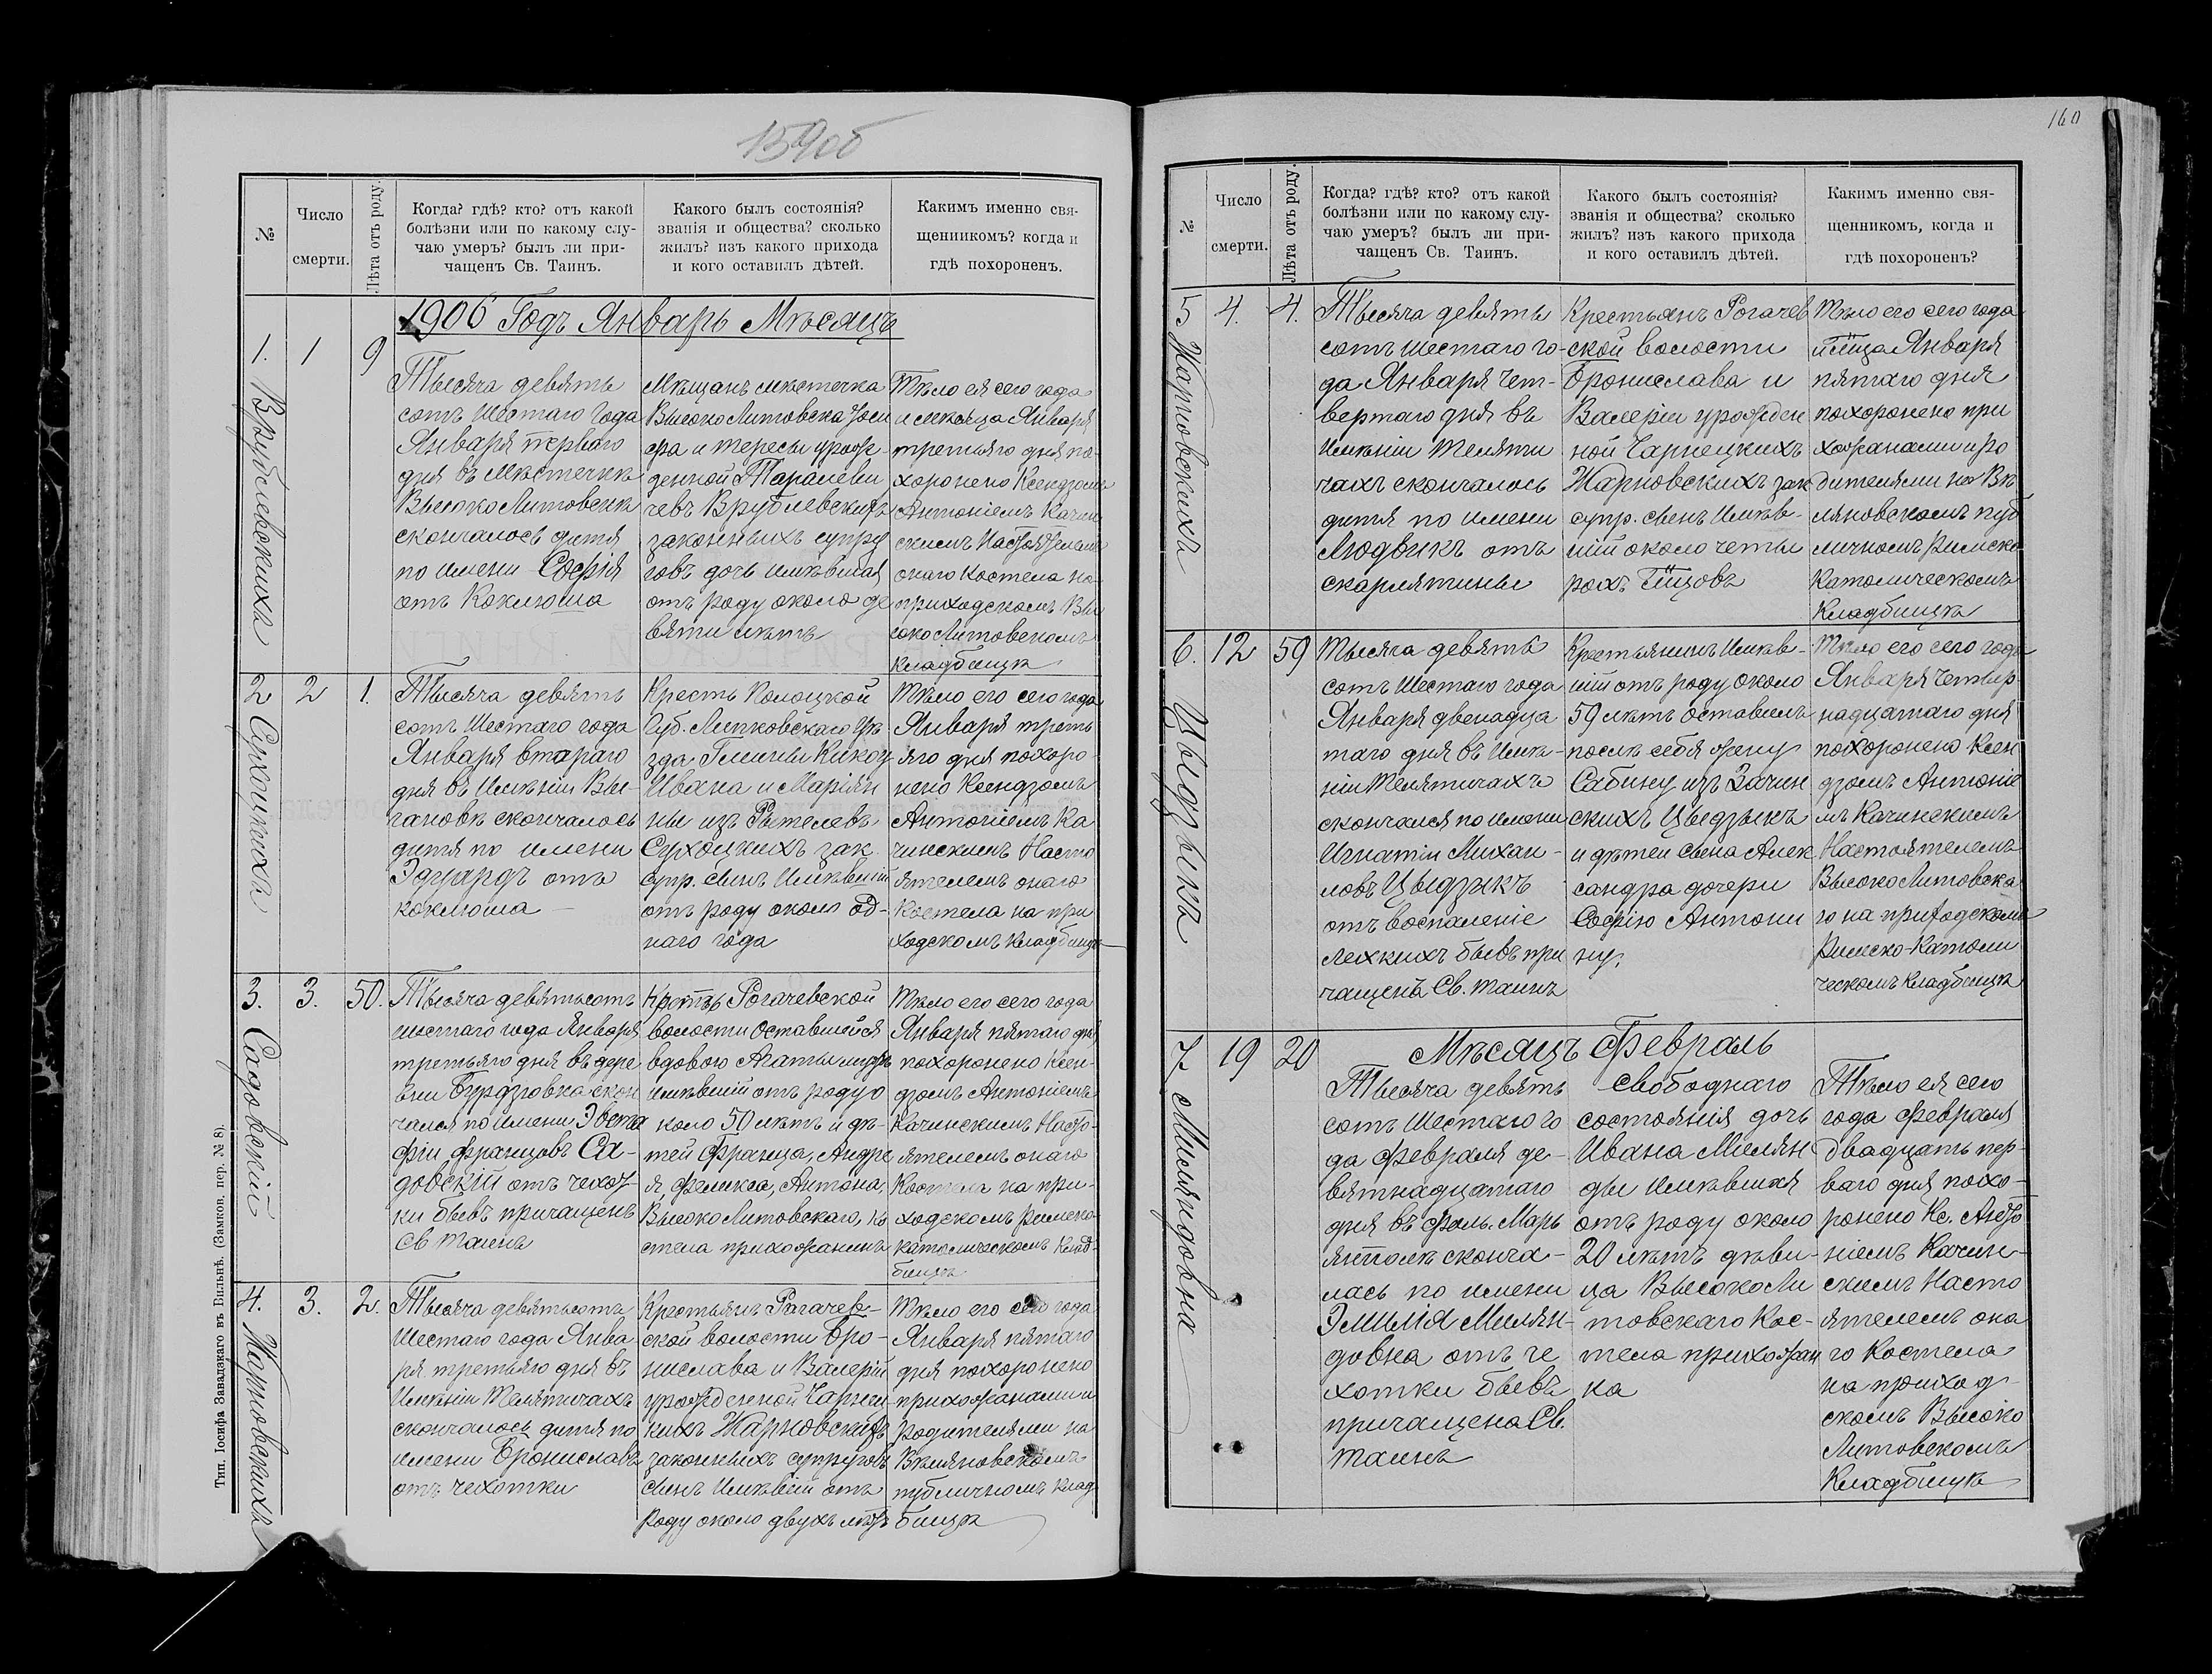 159об
№
Число
смерти.
Лѣта отъ роду.
Когда? гдѣ? кто? отъ какой
болѣзни или по какому слу-
чаю умеръ? былъ ли при-
чащенъ Св. Таинъ.
Какого былъ состоянія?
званія и общества? сколько
жилъ? изъ какого прихода
и кого оставилъ дѣтей.
Какимъ именно свя-
щенникомъ? когда и
гдѣ похороненъ.
1906 Годъ Январь Мѣсяцъ
1.
Врублевскихъ
1
9
Тысяча девять
сотъ Шестаго Года
Января перваго
дня въ Мѣстечкѣ
Высоко Литовскѣ
скончалось дитя
по имени Софія
отъ Коклюша
Мѣщанъ мѣстечка
Высоко Литовска Іоси
фа и Тересы урожде-
денной Таралеви
чевъ Врублевскихъ
законныхъ супру
говъ дочь имѣвшая
отъ роду около де
вяти лѣтъ
Тѣло ея сего года
и мѣсяца Января
третьяго дня по-
хоронено Ксендзомъ
Антоніемъ Качин
скимъ Настоятелемъ
онаго костела на
приходскомъ Вы
соко Литовскомъ
кладбищѣ
2
Сухоцкихъ
2
1.
Тысяча девять
сотъ Шестаго года
Января втараго
дня въ Имѣніи Вы-
гановѣ скончалось
дитя по имени
Эдуардъ отъ
коклюша
Кресть Полоцкой
Губ. Липковскаго Уѣ
зда Гмины Кикоц
Ивана и Маріян
ны изъ Рателевъ
Сухоцкихъ зак.
супр. сынъ Имѣвшій
отъ роду около од-
наго года
Тѣло его сего года
Января треть
яго дня похоро-
нено Ксендзомъ
Антоніемъ Ка
чинскимъ Насто
ятелемъ онаго
Костела на при
ходскомъ кладбищѣ
3.
Садовскій
3.
50.
Тысяча девятьсотъ
шестаго года Января
третьяго дня въ дере
вни Бурдзовка скон
чался по имени Эвста
фій Францовъ Са-
довскій отъ чехот-
ки бывъ причащенъ
Св Таинъ
Рогачевской
волости Оставшейся
вдовою Агаты мужъ
имѣвшій отъ роду о
коло 50 лѣтъ и дѣ-
тей Франца, Андре
я, Феликса, Антона,
Высоко Литовскаго, ко
стела прихожанинъ
Тѣло его сего года
Января пятаго дня
похоронено Ксен-
дзомъ Антоніемъ
Качинскимъ Насто-
ятелемъ онаго
Костела на при-
ходскомъ Римско-
католическомъ Клад-
бищѣ
4.
Жарновскихъ
3.
2.
Тысяча девятьсотъ
Шестаго года Янва
ря третьяго дня въ
Имѣніи Телятичахъ
скончалось дитя по
имени Брониславъ
отъ чехотки
Крестьянъ Рагачев-
ской волости Бро-
нислава и Валеріи
урожденной Чарнец
кихъ Жарновскихъ
законныхъ супруговъ
сынъ Имѣвшій отъ
роду около двухъ лѣтъ
Тѣло его сего года
Января пятаго
дня похоронено
прихожанами и
родителями на
Вѣляновскомъ
публичномъ клад
бищѣ
Тип. Іосифа Завадзкаго въ Вильнѣ. (Замков. пер. № 8).
160
№
Число
смерти.
Лѣта отъ роду.
Когда? гдѣ? кто? отъ какой
болѣзни или по какому слу-
чаю умеръ? былъ ли при-
чащенъ Св. Таинъ.
Какого былъ состоянія?
званія и общества? сколько
жилъ? изъ какого прихода
и кого оставилъ дѣтей.
Какимъ именно свя-
щенникомъ, когда и
гдѣ похороненъ?
5
Жарновскихъ
4.
4.
Тысяча девять
сотъ Шестаго го-
да Января Чет-
вертаго дня въ
Имѣніи Теляти
чахъ скончалось
дитя по имени
Людвикъ отъ
скарлятины
Крестьянъ Рогачев
ской волости
Бронислава и
Валеріи урожден
ной Чарнецкихъ
Жарновскихъ зак
супр. сынъ Имѣв-
шій около четы
рохъ
Тѣло его сего года
Января
пятаго дня
похоронено при
хожанами и ро
дителями на Вѣ
ляновскомъ пуб
личномъ Римско
Католическомъ
Кладбищѣ
6.
Цыдзикъ
12
59
Тысяча девять
сотъ Шестаго года
Января двенадца
таго дня въ Имѣ-
ніи Телятичахъ
скончался по имени
Игнатій Михаи-
ловъ Цыдзикъ
отъ воспаленіе
лехкихъ бывъ при
чащенъ Св. Таинъ
Крестьянинъ Имѣв-
шій отъ роду около
59 лѣтъ оставилъ
послѣ себя жену
Сабину изъ Зачин
скихъ Цыдзикъ
и дѣтей сына Алек
сандра дочери
Софію Антони
ну.
Тѣло его сего года
Января Четыр-
надцатаго дня
похоронено Ксен
дзомъ Антоніе
мъ Качинскимъ
Настоятелемъ
Высоко Литовска
го на приходскомъ
Римско-Католи
ческомъ Кладбищѣ
Мѣсяцъ Февраль
7
Милянговна
19
20
Тысяча девять
сотъ Шестаго го
да Февраля де-
вятнадцатаго
дня въ Фоль. Марь
янполѣ сконча-
лась по имени
Эмилія Милян-
довна отъ че
хотки бывъ
причащена Св.
Таинъ
Свободнаго
состоянія дочь
Ивана Милян
ды имѣвшая
отъ роду около
20 лѣтъ дѣви-
ца Высоко Ли
товскаго Кос-
тела прихожан
ка
Тѣло ея сего
года Февраля
двадцать пер-
ваго дня похо-
ронено Кс. Анто
ніемъ Качин-
скимъ Насто
ятелемъ она
го Костела
на приход-
скомъ Высоко
Литовскомъ
Кладбищѣ